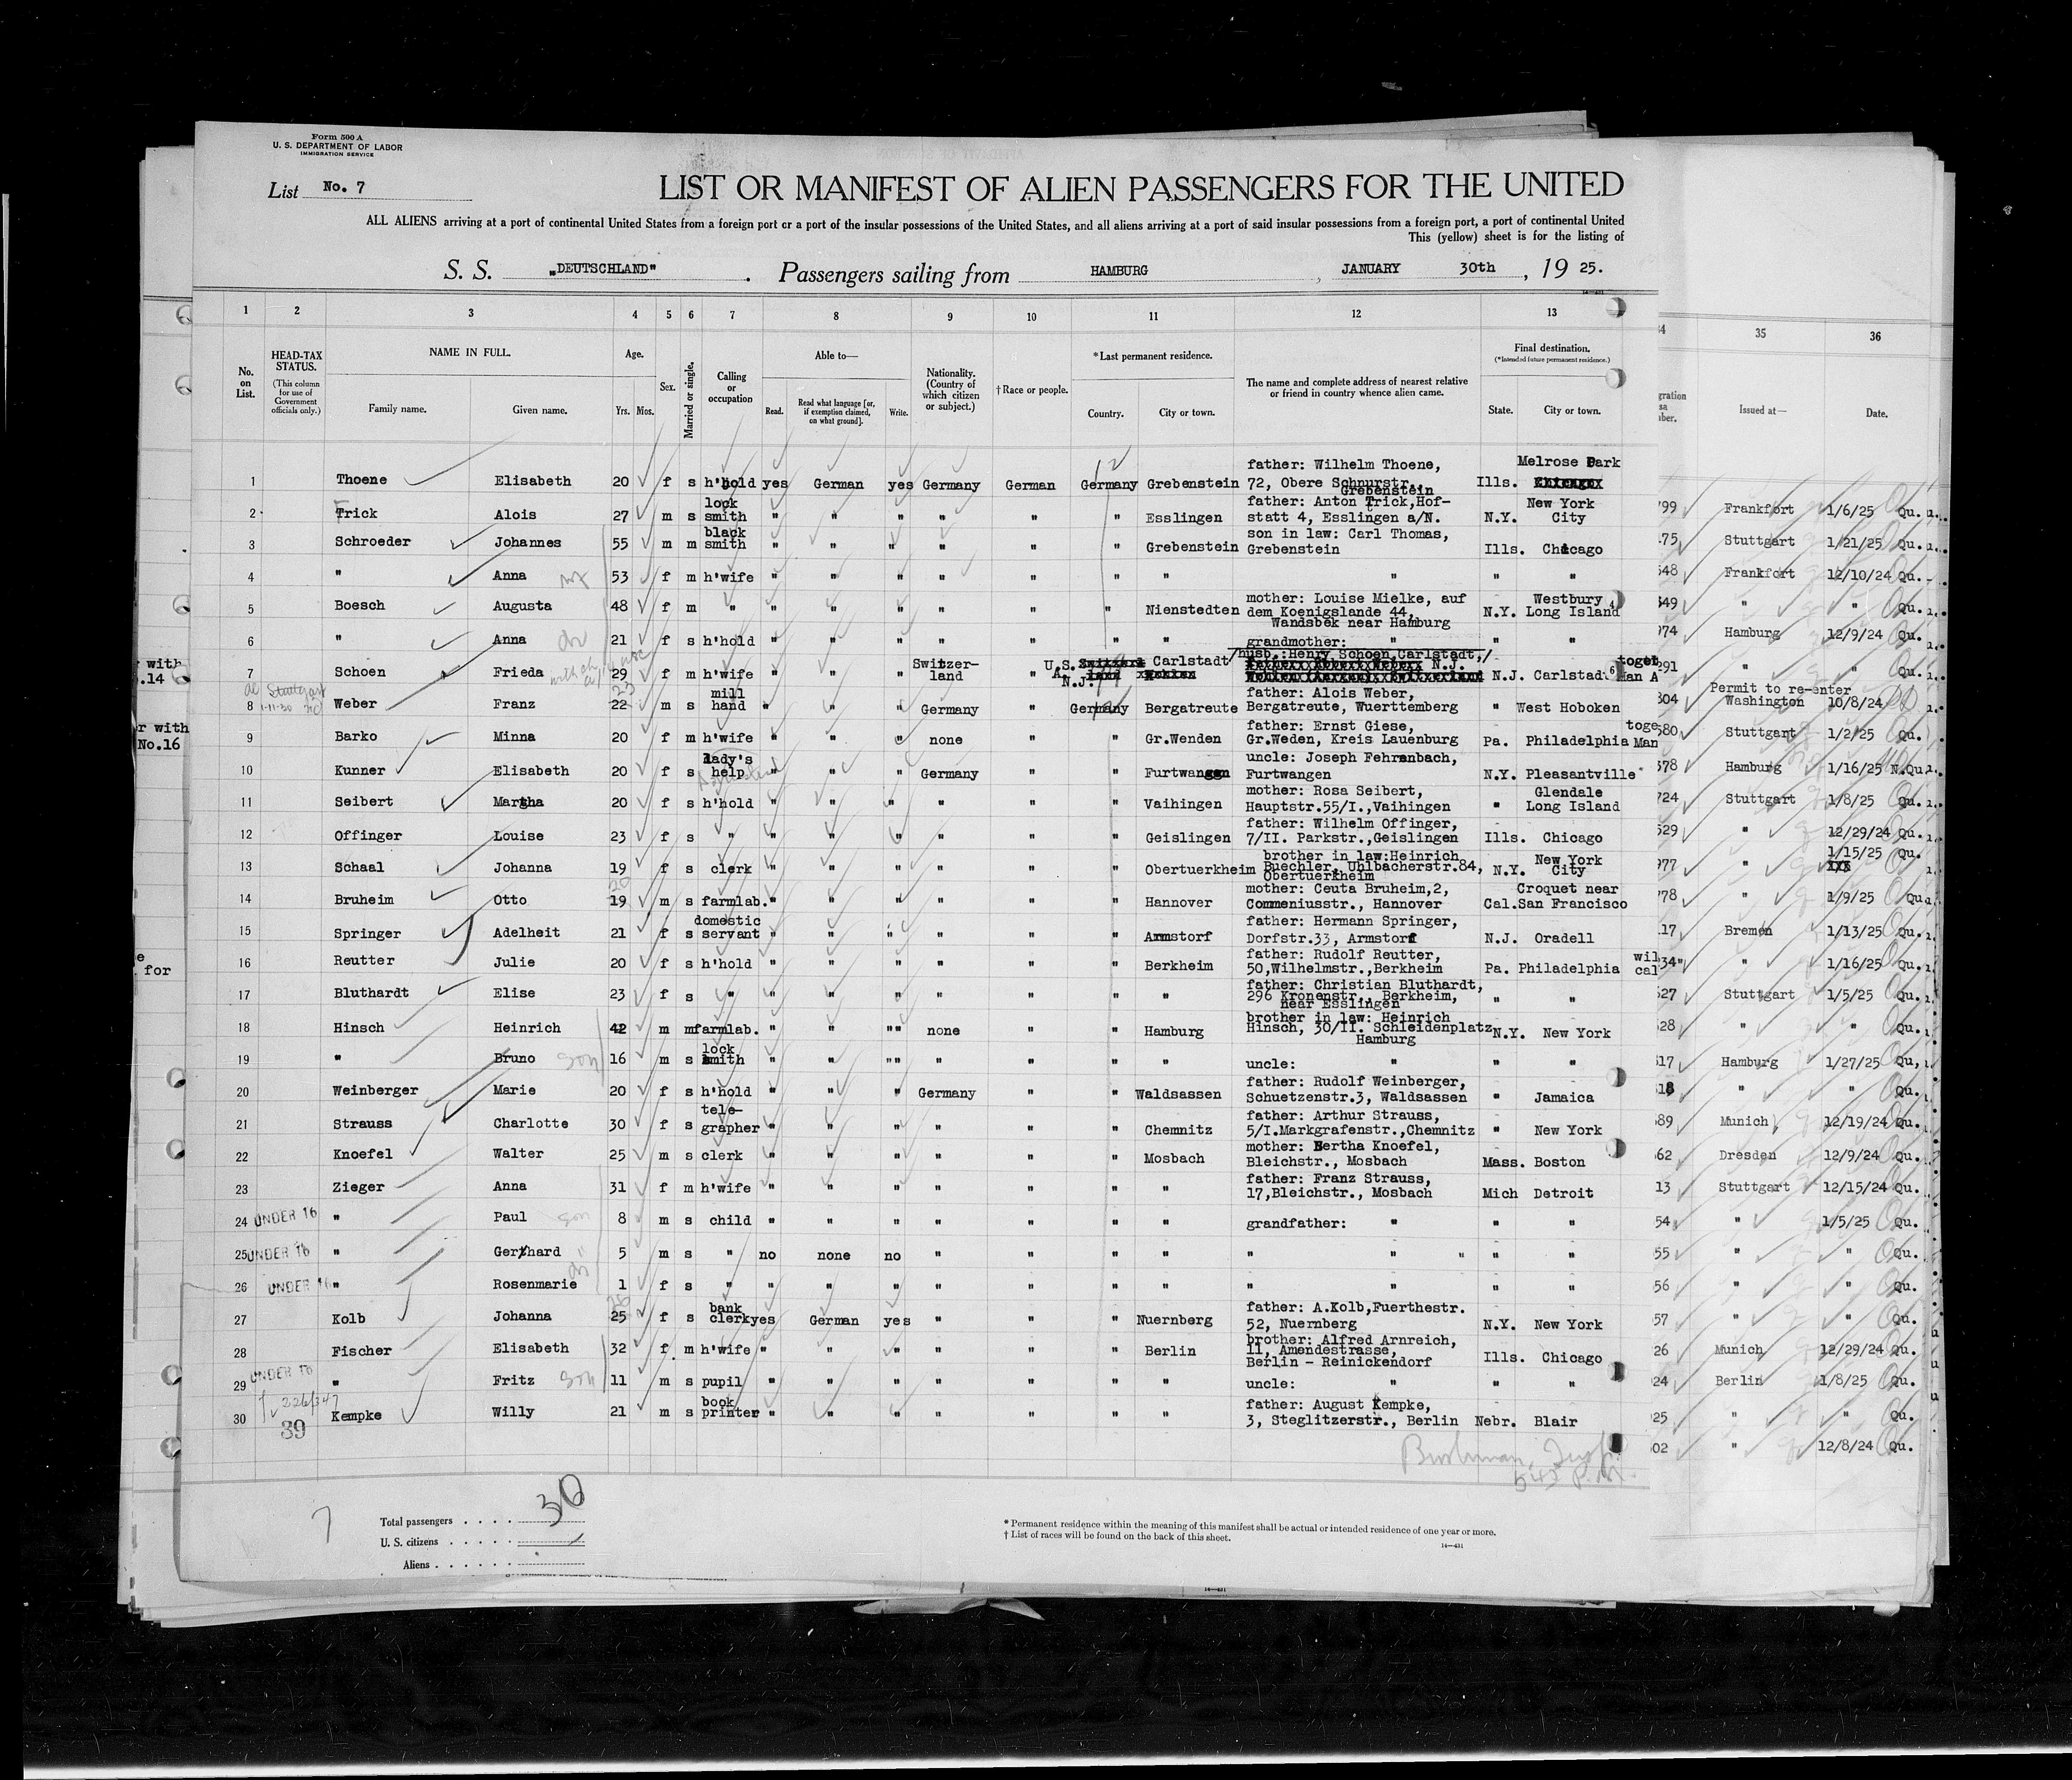 Form 500 A
U. S. DEPARTMENT OF LABOR
IMMIGRATION SERVICE
List No. 7
LIST OR MANIFEST OF ALIEN PASSENGERS FOR THE UNITED
ALL ALIENS arriving at a port of continental United States from a foreign port or a port of the insular possessions of the United States, and all aliens arriving at a port of said insular possessions from a foreign port, a port of continental United
This (yellow) sheet is for the listing of
S. S. "DEUTSCHLAND" . Passengers sailing from HAMBURG , JANUARY 30th , 19 25.
1 2 3 4 5 6 7 8 9 10 11 12 13 35 36
No. on List.
HEAD-TAX STATUS. (This column for use of Government officials only.)
NAME IN FULL. Family name. Given name.
Age. Yrs. Mos.
Sex.
Married or single.
Calling or occupation
Able to— Read. Read what language [or, if exemption claimed, on what ground]. Write.
Nationality. (Country of which citizen or subject.)
† Race or people.
* Last permanent residence. Country. City or town.
The name and complete address of nearest relative or friend in country whence alien came.
Final destination. (*Intended future permanent residence.) State. City or town.
Issued at— Date.
1 Thoene Elisabeth 20 f s h'hold yes German yes Germany German Germany Grebenstein father: Wilhelm Thoene, 72, Obere Schnurstr., Grebenstein Ills. Melrose Park Chicago
2 Trick Alois 27 m s lock smith " " " " " " Esslingen father: Anton Trick,Hof- statt 4, Esslingen a/N. N.Y. New York City
3 Schroeder Johannes 55 m m black smith " " " " " " Grebenstein son in law: Carl Thomas, Grebenstein Ills. Chicago
4 " Anna 53 f m h'wife " " " " " " " " " "
5 Boesch Augusta 48 f m " " " " " " " Nienstedten mother: Louise Mielke, auf dem Koenigslande 44, Wandsbek near Hamburg N.Y. Westbury Long Island
6 " Anna 21 f s h'hold " " " " " " " grandmother: " " "
7 Schoen Frieda 29 f m h'wife " " " Switzer- land " U.S. A. N.J. Carlstadt /husb.:Henry Schoen,Carlstadt,/ N.J. N.J. Carlstadt
8 Weber Franz 22 m s mill hand " " " Germany " Germany Bergatreute father: Alois Weber, Bergatreute, Wuerttemberg " West Hoboken
9 Barko Minna 20 f m h'wife " " " none " " Gr.Wenden father: Ernst Giese, Gr.Weden, Kreis Lauenburg Pa. Philadelphia
10 Kunner Elisabeth 20 f s lady's help " " " Germany " " Furtwangen uncle: Joseph Fehrenbach, Furtwangen N.Y. Pleasantville
11 Seibert Martha 20 f s h'hold " " " " " " Vaihingen mother: Rosa Seibert, Hauptstr.55/I.,Vaihingen " Glendale Long Island
12 Offinger Louise 23 f s " " " " " " " Geislingen father: Wilhelm Offinger, 7/II. Parkstr.,Geislingen Ills. Chicago
13 Schaal Johanna 19 f s clerk " " " " " " Obertuerkheim brother in law:Heinrich Buechler, Uhlbacherstr.84, Obertuerkheim N.Y. New York City
14 Bruheim Otto 19 m s farmlab. " " " " " " Hannover mother: Ceuta Bruheim,2, Commeniusstr., Hannover Cal. Croquet near San Francisco
15 Springer Adelheit 21 f s domestic servant " " " " " " Armstorf father: Hermann Springer, Dorfstr.33, Armstorf N.J. Oradell
16 Reutter Julie 20 f s h'hold " " " " " " Berkheim father: Rudolf Reutter, 50,Wilhelmstr.,Berkheim Pa. Philadelphia
17 Bluthardt Elise 23 f s " " " " " " " " father: Christian Bluthardt, 296 Kronenstr., Berkheim, near Esslingen " "
18 Hinsch Heinrich 42 m m farmlab. " " "" none " " Hamburg brother in law: Heinrich Hinsch, 30/II. Schleidenplatz Hamburg N.Y. New York
19 " Bruno son 16 m s lock smith " " "" " " " " uncle: " " "
20 Weinberger Marie 20 f s h'hold " " " Germany " " Waldsassen father: Rudolf Weinberger, Schuetzenstr.3, Waldsassen " Jamaica
21 Strauss Charlotte 30 f s tele- grapher " " " " " " Chemnitz father: Arthur Strauss, 5/I.Markgrafenstr.,Chemnitz " New York
22 Knoefel Walter 25 m s clerk " " " " " " Mosbach mother: Bertha Knoefel, Bleichstr., Mosbach Mass. Boston
23 Zieger Anna 31 f m h'wife " " " " " " " father: Franz Strauss, 17,Bleichstr., Mosbach Mich Detroit
24 UNDER 16 " Paul son 8 m s child " " " " " " " grandfather: " " "
25 UNDER 16 " Gerhard 5 m s " no none no " " " " " " " " "
26 UNDER 16 " Rosenmarie 1 f s " " " " " " " " " " " "
27 Kolb Johanna 25 f s bank clerk yes German yes " " " Nuernberg father: A.Kolb,Fuerthestr. 52, Nuernberg N.Y. New York
28 Fischer Elisabeth 32 f m h'wife " " " " " " Berlin brother: Alfred Arnreich, 11, Amendestrasse, Berlin - Reinickendorf Ills. Chicago
29 UNDER 16 " Fritz son 11 m s pupil " " " " " " " uncle: " " "
30 39 Kempke Willy 21 m s book printer " " " " " " " father: August Kempke, 3, Steglitzerstr., Berlin Nebr. Blair
799 Frankfort 1/6/25 Qu.
175 Stuttgart 1/21/25 Qu.
548 Frankfort 12/10/24 Qu.
549 " " Qu.
974 Hamburg 12/9/24 Qu.
291 " " Qu.
804 Permit to re-enter Washington 10/8/24
580 Stuttgart 1/2/25 Qu.
378 Hamburg 1/16/25 N.Qu.
724 Stuttgart 1/8/25 Qu.
529 " 12/29/24 Qu.
977 " 1/15/25 xxx Qu.
778 " 1/9/25 Qu.
17 Bremen 1/13/25 Qu.
34 " 1/16/25 Qu.
527 Stuttgart 1/5/25 Qu.
28 " " Qu.
617 Hamburg 1/27/25 Qu,
618 " " Qu.
689 Munich 12/19/24 Qu.
662 Dresden 12/9/24 Qu.
13 Stuttgart 12/15/24 Qu.
54 " 1/5/25 Qu.
55 " " Qu.
56 " " Qu.
57 " " Qu.
26 Munich 12/29/24 Qu.
24 Berlin 1/8/25 Qu.
25 " " Qu.
02 " 12/8/24 Qu.
7
Total passengers . . . . 30
U. S. citizens . . . . .
Aliens . . . . . .
* Permanent residence within the meaning of this manifest shall be actual or intended residence of one year or more.
† List of races will be found on the back of this sheet.
14—431